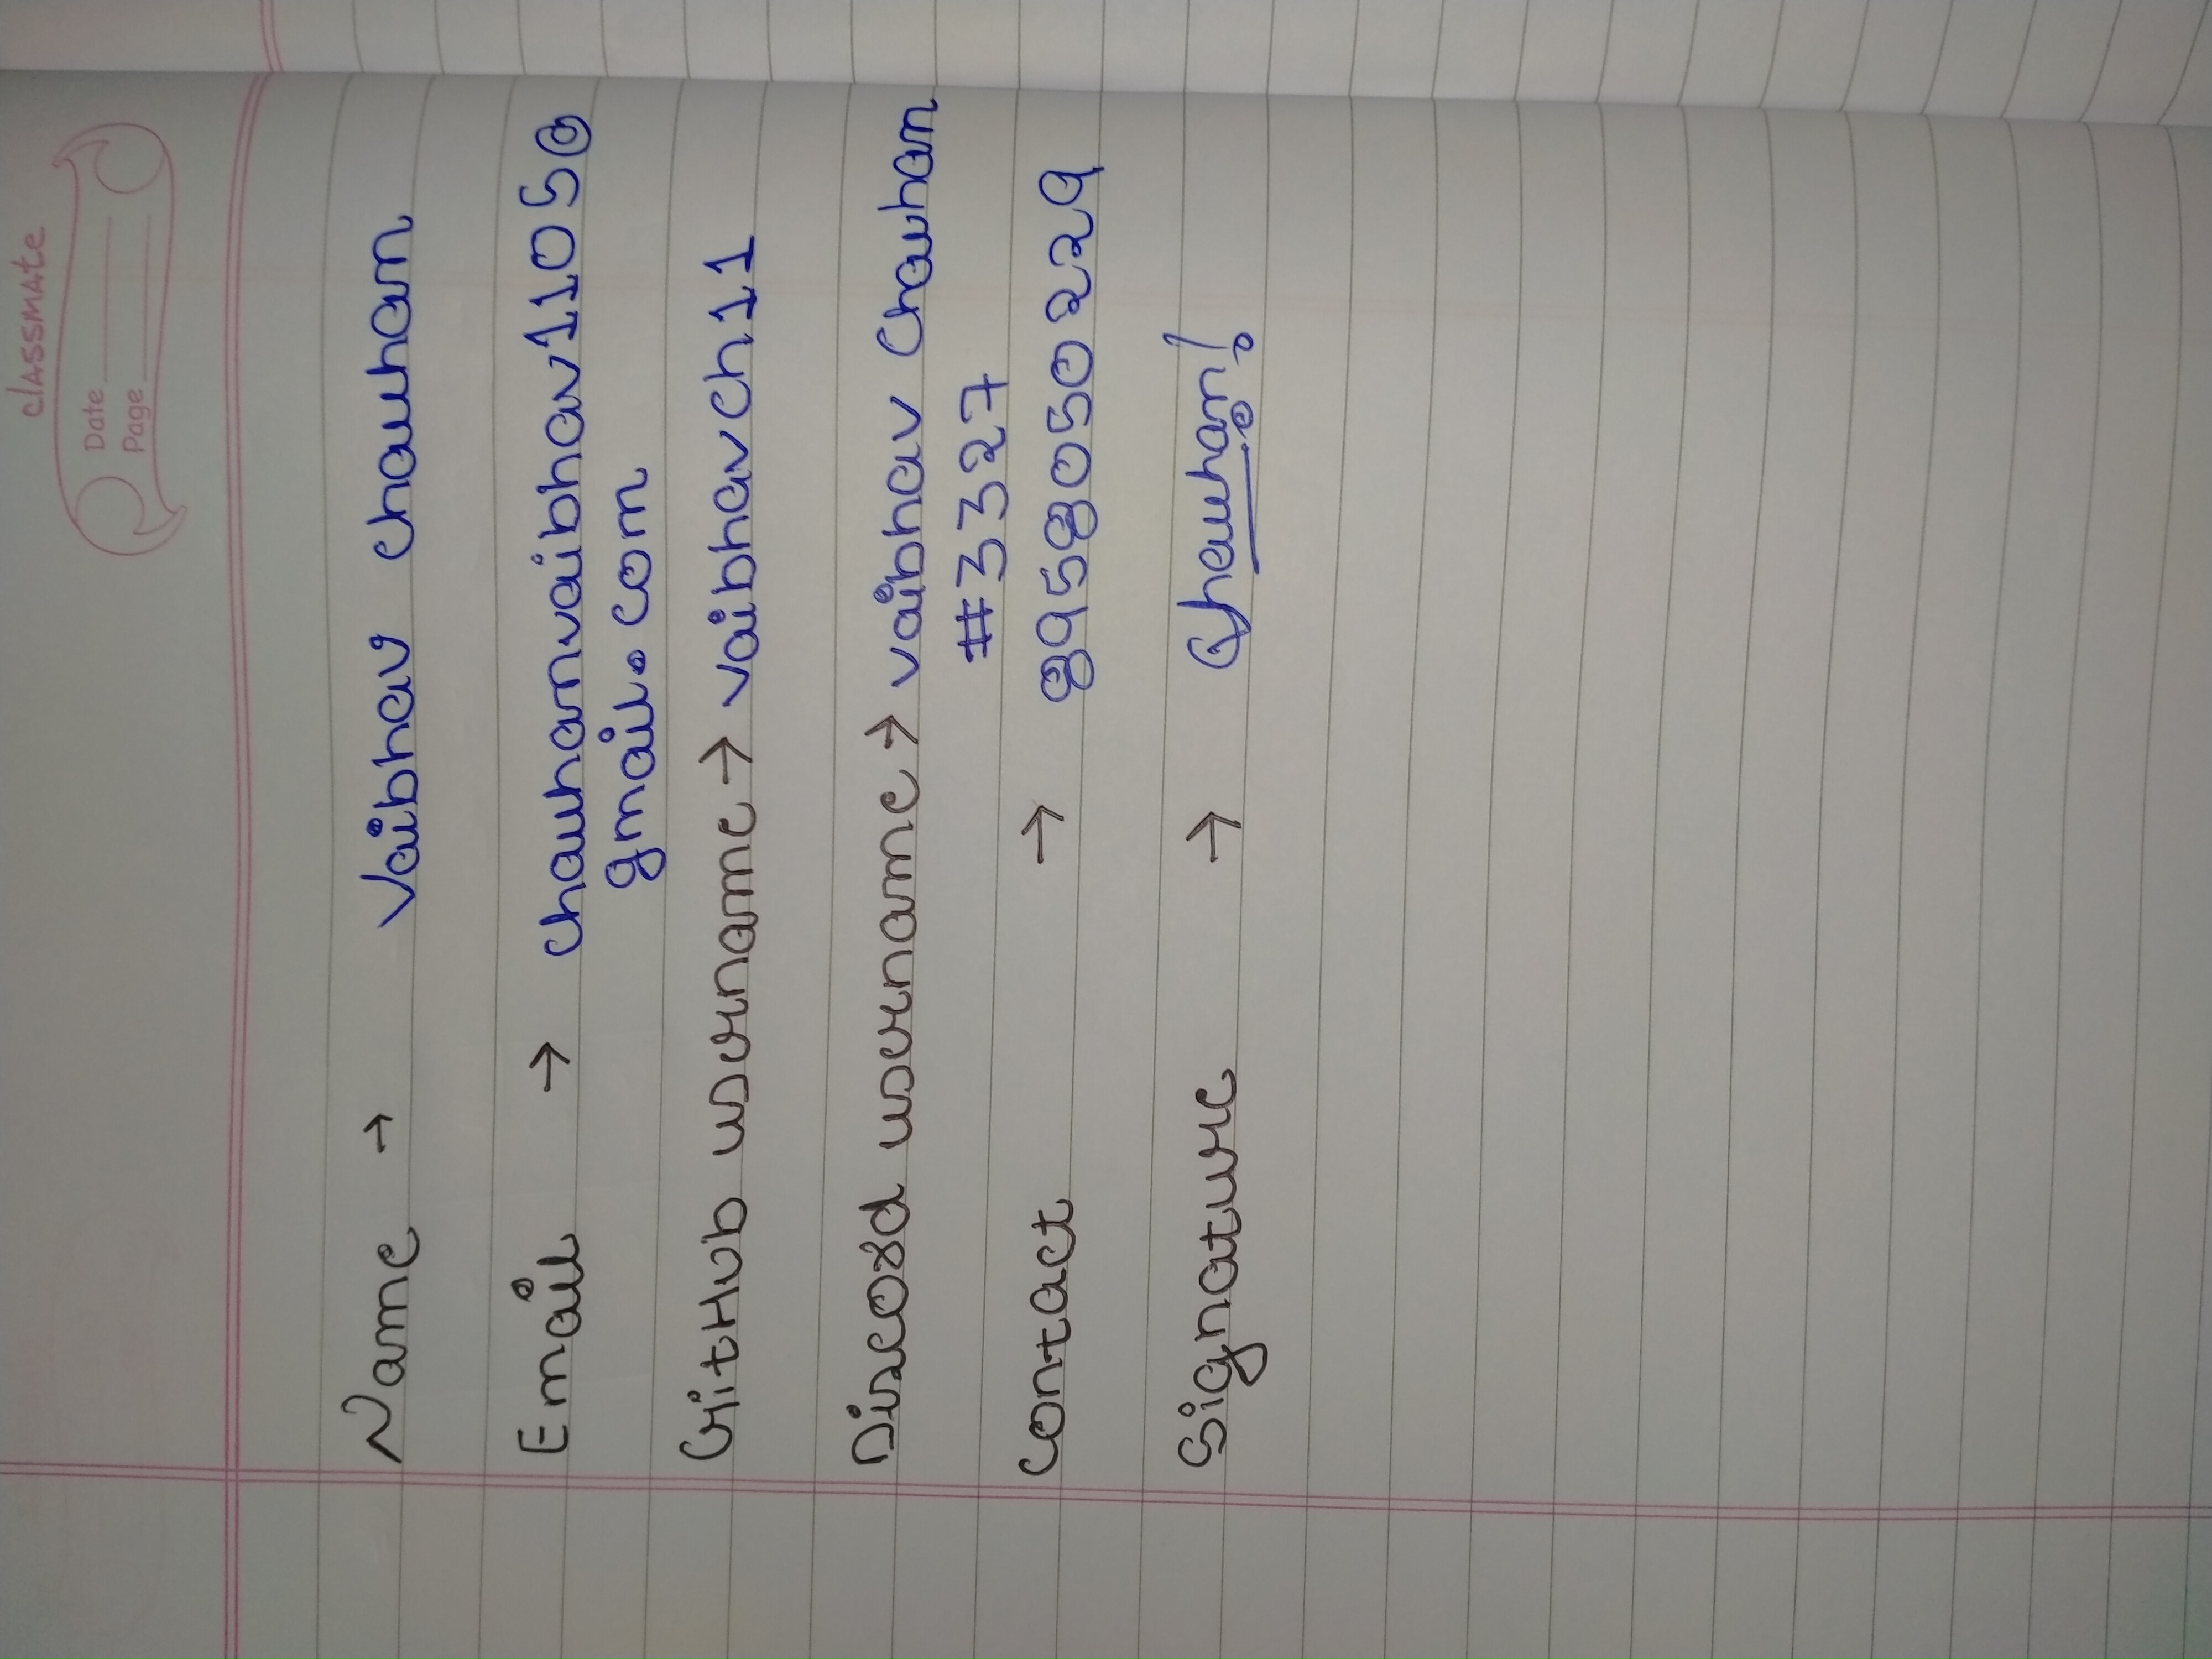 classmate
Date
Page
Name → Vaibhav Chauhan
Email → chauhanvaibhav1105@
gmail.com
GitHub username → vaibhavch11
Discord username → vaibhav Chauhan
#3327
Contact → 8958050229
Signature → Chauhan!